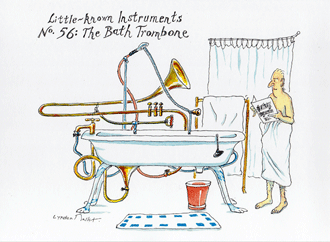 Little-known Instruments
No. 56: The Bath Trombone